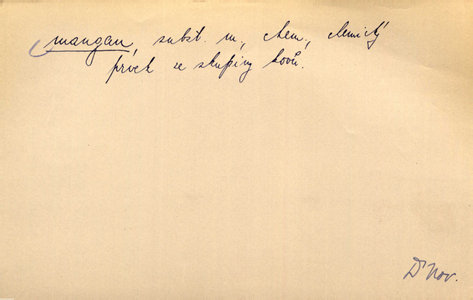 mangan, subst. m., chem., chemický
prvek ze skupiny kovů.
Dr Nov.